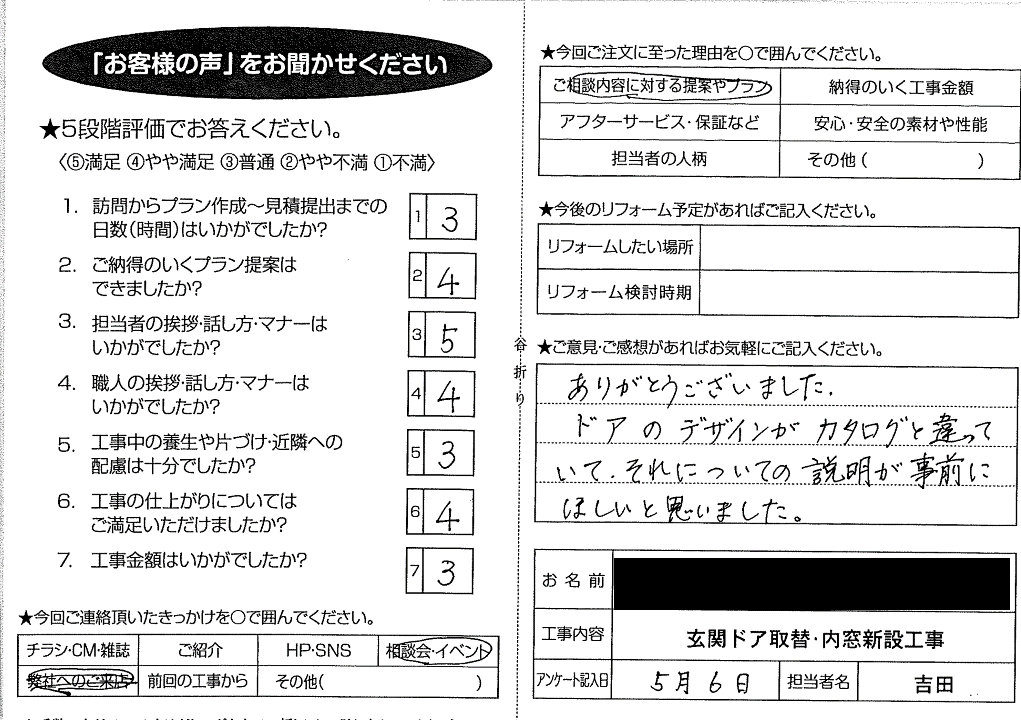 「お客様の声」をお聞かせください
★5段階評価でお答えください。
〈⑤満足 ④やや満足 ③普通 ②やや不満 ①不満〉
1. 訪問からプラン作成～見積提出までの
日数(時間)はいかがでしたか?
1 3
2. ご納得のいくプラン提案は
できましたか?
2 4
3. 担当者の挨拶・話し方・マナーは
いかがでしたか?
3 5
4. 職人の挨拶・話し方・マナーは
いかがでしたか?
4 4
5. 工事中の養生や片づけ・近隣への
配慮は十分でしたか?
5 3
6. 工事の仕上がりについては
ご満足いただけましたか?
6 4
7. 工事金額はいかがでしたか?
7 3
★今回ご連絡頂いたきっかけを〇で囲んでください。
チラシ・CM・雑誌 ご紹介 HP・SNS 相談会・イベント
弊社へのご来店 前回の工事から その他( )
谷折り
★今回ご注文に至った理由を〇で囲んでください。
ご相談内容に対する提案やプラン 納得のいく工事金額
アフターサービス・保証など 安心・安全の素材や性能
担当者の人柄 その他( )
★今後のリフォーム予定があればご記入ください。
リフォームしたい場所
リフォーム検討時期
★ご意見・ご感想があればお気軽にご記入ください。
ありがとうございました.
ドアのデザインがカタログと違って
いて.それについての説明が事前に
ほしいと思いました。
お名前
工事内容 玄関ドア取替・内窓新設工事
アンケート記入日 5月6日 担当者名 吉田